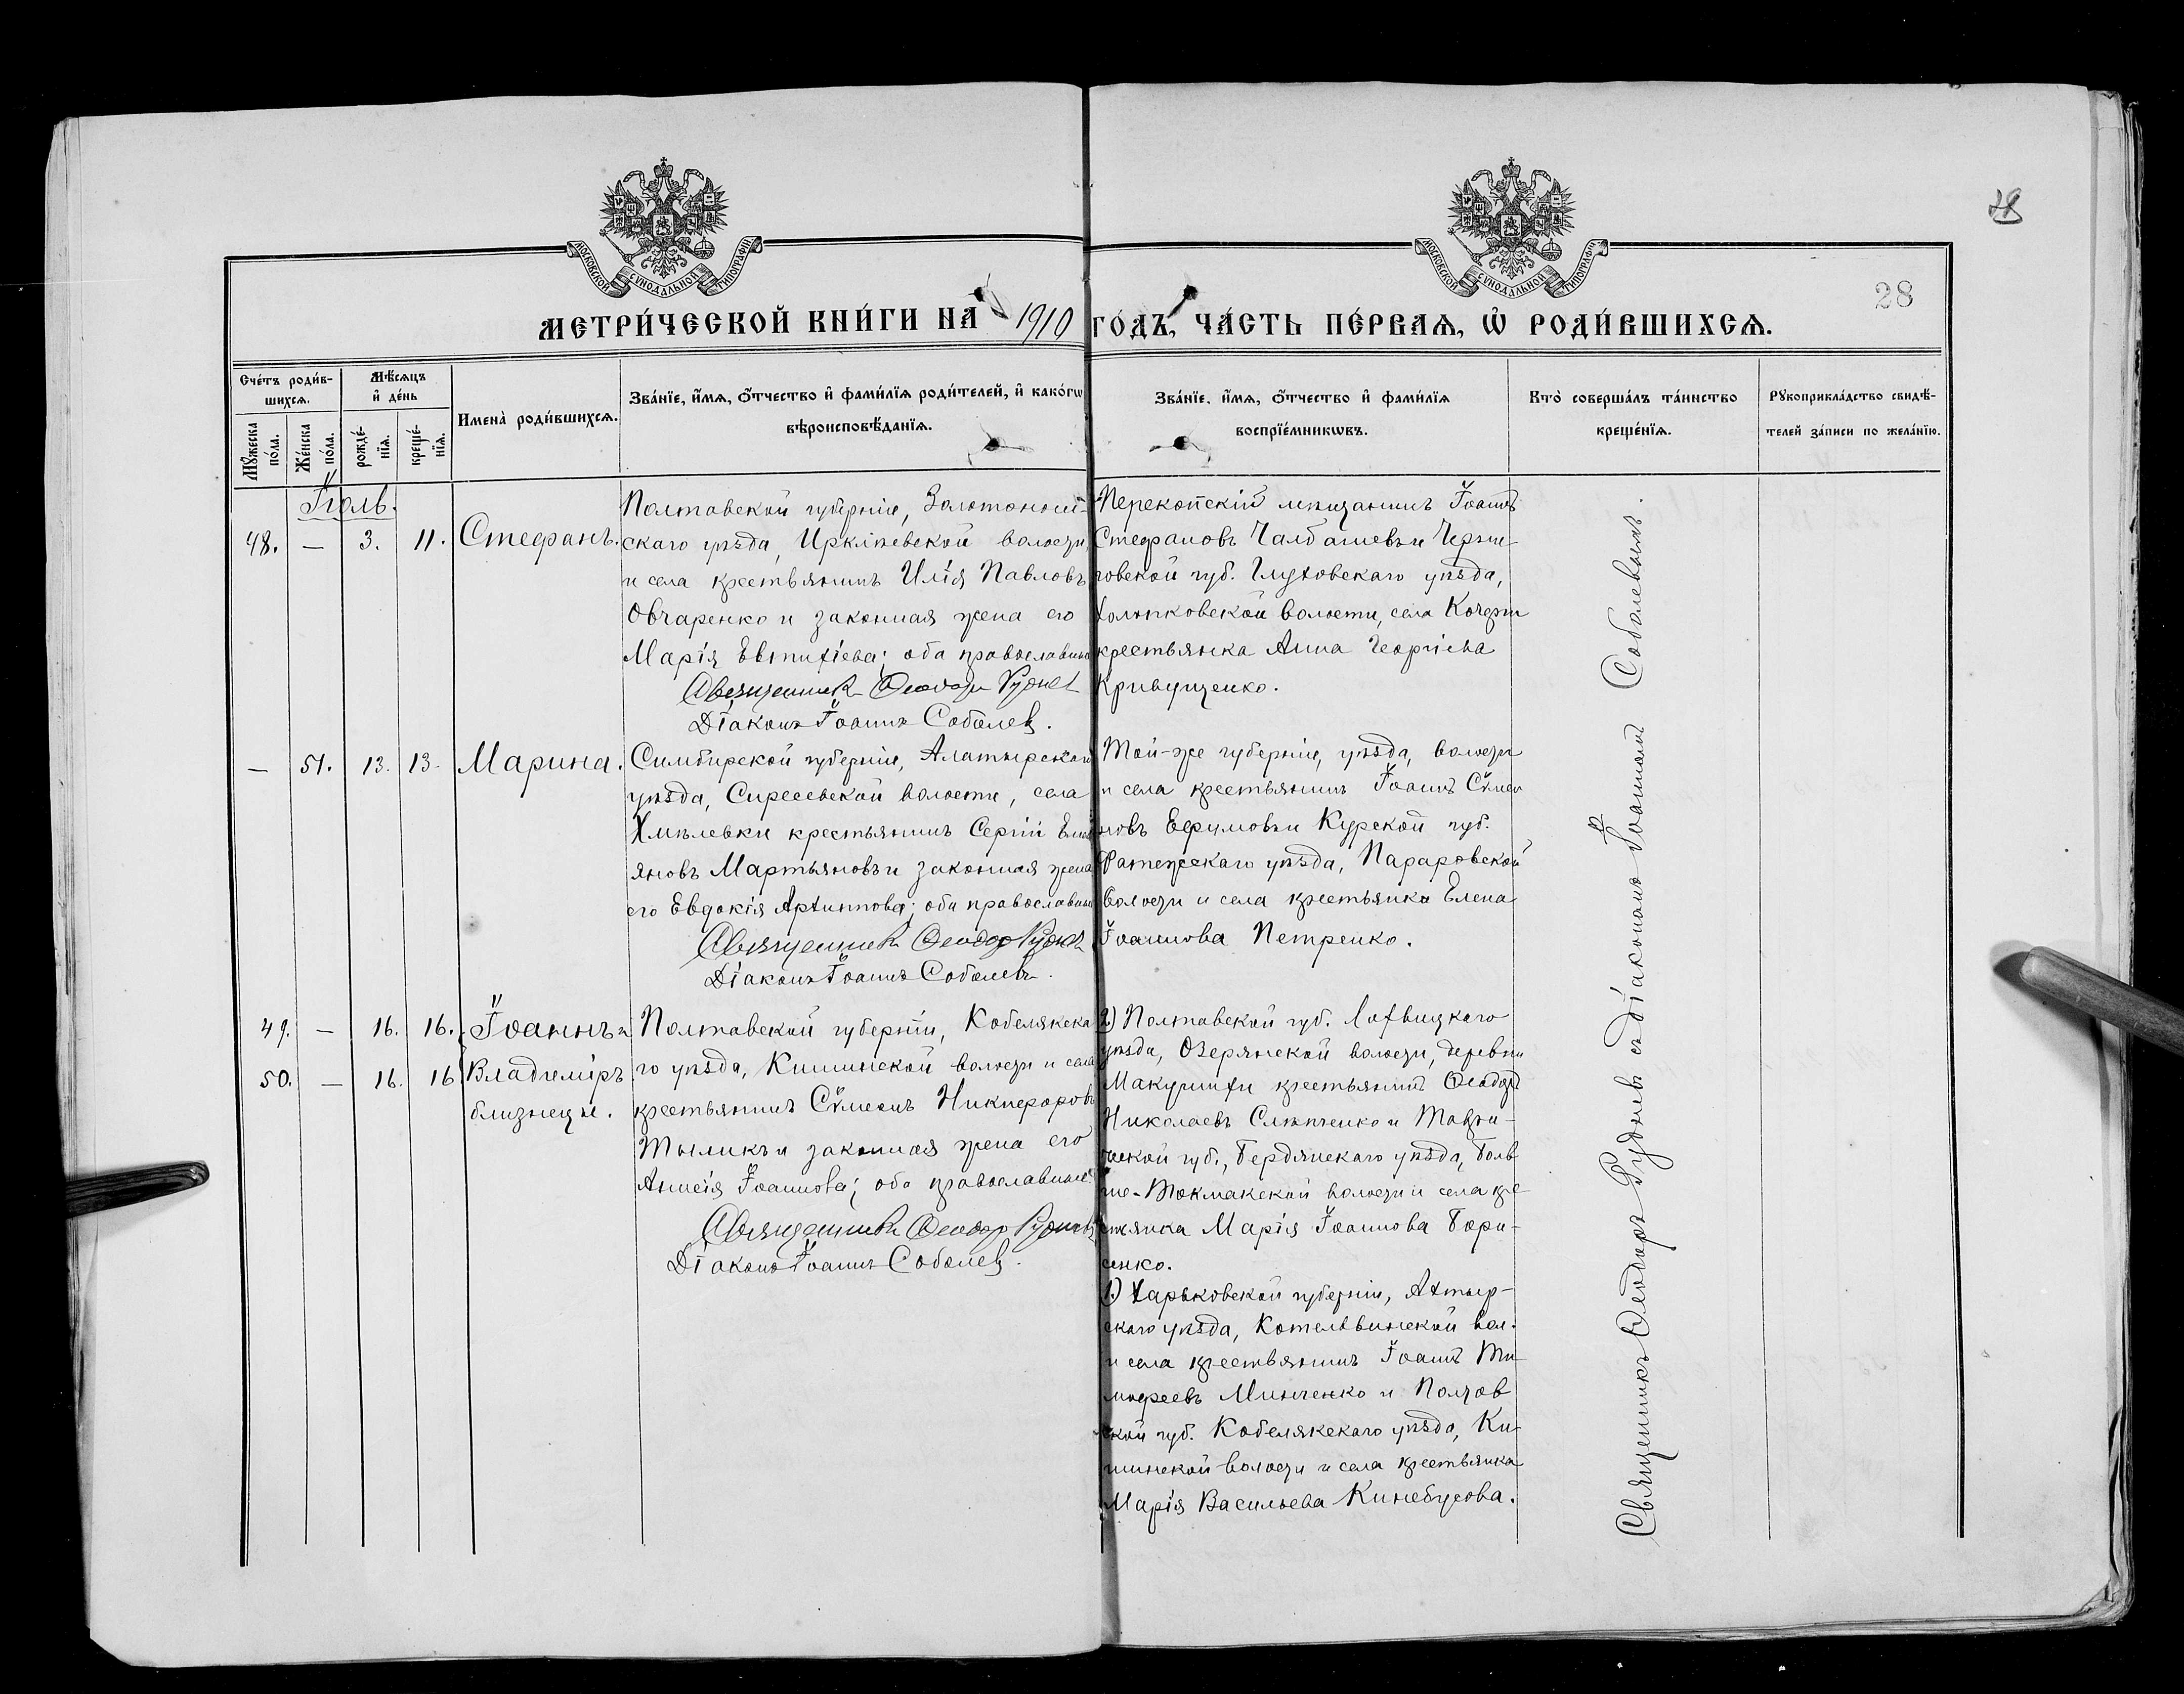 МОСКОВСКОЙ СѴНОДАЛЬНОЙ ТИПОГРАФІИ
МОСКОВСКОЙ СѴНОДАЛЬНОЙ ТИПОГРАФІИ
28
28
МЕТРИ́ЧЕСКОЙ КНИ́ГИ НА 1910 ГО́ДЪ, ЧА́СТЬ ПЕ́РВАѦ, Ѡ҆ РОДИ́ВШИХСѦ.
Сче́тъ роди́в-
шихсѧ.
Мѣ́сѧцъ
и҆ де́нь
Мꙋ́жеска
по́ла.
Же́нска
по́ла.
рожде́-
нїѧ.
креще́-
нїѧ.
Имена̀ роди́вшихсѧ.
Зва́нїе, и҆́мѧ, ѻ҆́тчество и҆ фами́лїѧ роди́телей, и҆ како́гѡ
вѣроисповѣ́данїѧ.
Зва́нїе, и҆́мѧ, ѻ҆́тчество и҆ фами́лїѧ
воспрїе́мникѡвъ.
Кто̀ соверша́лъ та́инство
креще́нїѧ.
Рꙋкоприкла́дство свидѣ́-
телей за́писи по жела́нїю.
Іюль.
48. — 3. 11. Стефанъ.
Полтавской губерніи, Золотонош-
скаго уѣзда, Ирклѣевской волости
и села крестьянинъ Илія Павловъ
Овчаренко и законная жена его
Марія Евтихіева; оба православные
Священникъ Ѳеодоръ Рудневъ
Діаконъ Іоаннъ Соболевъ.
Перекопскій мѣщанинъ Іоаннъ
Стефановъ Чалбашевъ и Черни-
говской губ. Глуховскаго уѣзда,
Холопковской волости, села
крестьянка Анна Георгіева
Кривущенко.
— 51. 13. 13. Марина.
Симбирской губерніи, Алатырскаго
уѣзда, Сиресевской волости, села
Хмѣлевки крестьянинъ Сергій Емель
яновъ Мартьяновъ и законная жена
его Евдокія Архиппова; оба православные
Священникъ Ѳеодоръ Рудневъ
Діаконъ Іоаннъ Соболевъ.
Той-же губерніи, уѣзда, волости
и села крестьянинъ Іоаннъ Сѵмео
новъ Ефимовъ и Курской губ.
Фатежскаго уѣзда,
волости и села крестьянка Елена
Іоаннова Петренко.
49. — 16. 16. Іоаннъ и
50. — 16. 16 Владиміръ
близнецы.
Полтавской губерніи, Кобелякска
го уѣзда, Кишинской волости и села
крестьянинъ Сѵмеонъ Никифоровъ
Тыликъ и законная жена его
Анисія Іоаннова; оба православные
Священникъ Ѳеодоръ Рудневъ
Діаконъ Іоаннъ Соболевъ.
2) Полтавской губ. Лохвицкаго
уѣзда, Озерянской волости, деревни
Макушихи крестьянинъ Ѳеодоръ
Николаевъ Слѣпченко и Таври-
ческой губ., Бердянскаго уѣзда, Боль
ше-Токмакской волости и села кре-
стьянка Марія Іоаннова Бори-
сенко.
1) Харьковской губерніи, Ахтыр-
скаго уѣзда, Котельвинской вол.
и села крестьянинъ Іоаннъ Ти-
моѳеевъ Минченко и Полтав
ской губ. Кобелякскаго уѣзда, Ки-
шинской волости и села крестьянка
Марія Васильева Кинебусова.
Священникъ Ѳеодоръ Рудневъ съ Діакономъ Іоанномъ Соболевымъ.